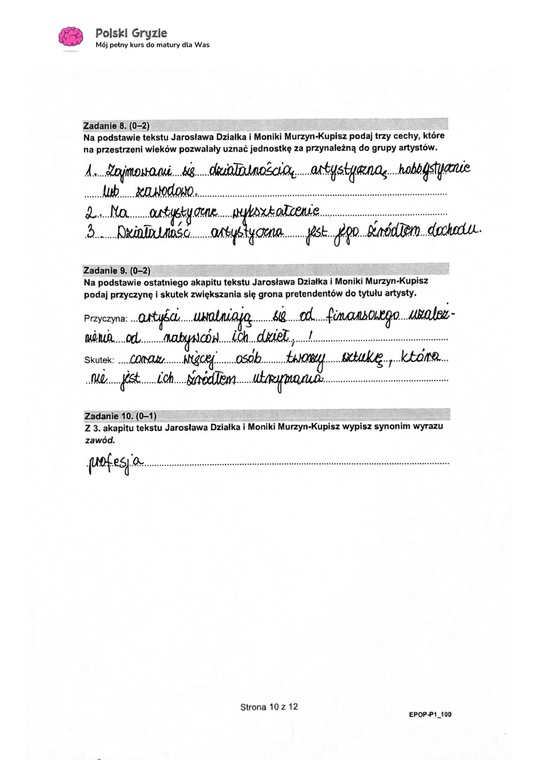 Polski Gryzie
Mój pełny kurs do matury dla Was
Zadanie 8. (0–2)
Na podstawie tekstu Jarosława Działka i Moniki Murzyn-Kupisz podaj trzy cechy, które
na przestrzeni wieków pozwalały uznać jednostkę za przynależną do grupy artystów.
1. Zajmowani się działalnością artystyczną hobbystycznie
lub zawodowo.
2. Ma artystyczne wykształcenie
3. Działalność artystyczna jest jego źródłem dochodu.
Zadanie 9. (0–2)
Na podstawie ostatniego akapitu tekstu Jarosława Działka i Moniki Murzyn-Kupisz
podaj przyczynę i skutek zwiększania się grona pretendentów do tytułu artysty.
Przyczyna: artyści uwalniają się od finansowego uzależ-
nienia od nabywców ich dzieł, !
Skutek: coraz więcej osób tworzy sztukę, która
nie jest ich źródłem utrzymania
Zadanie 10. (0–1)
Z 3. akapitu tekstu Jarosława Działka i Moniki Murzyn-Kupisz wypisz synonim wyrazu
zawód.
profesja
Strona 10 z 12
EPOP-P1_100